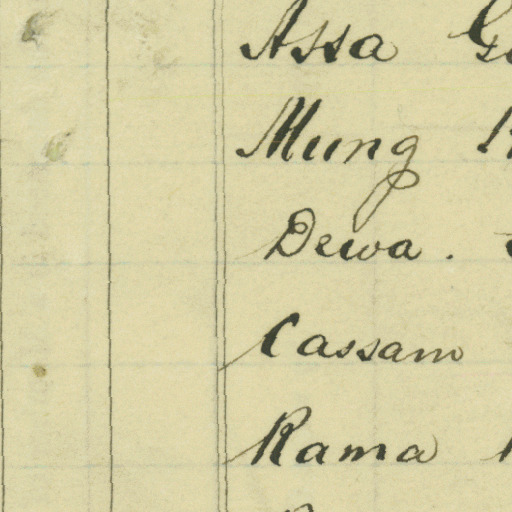 Assa
Mung
Dewa.
Cassam
Rama